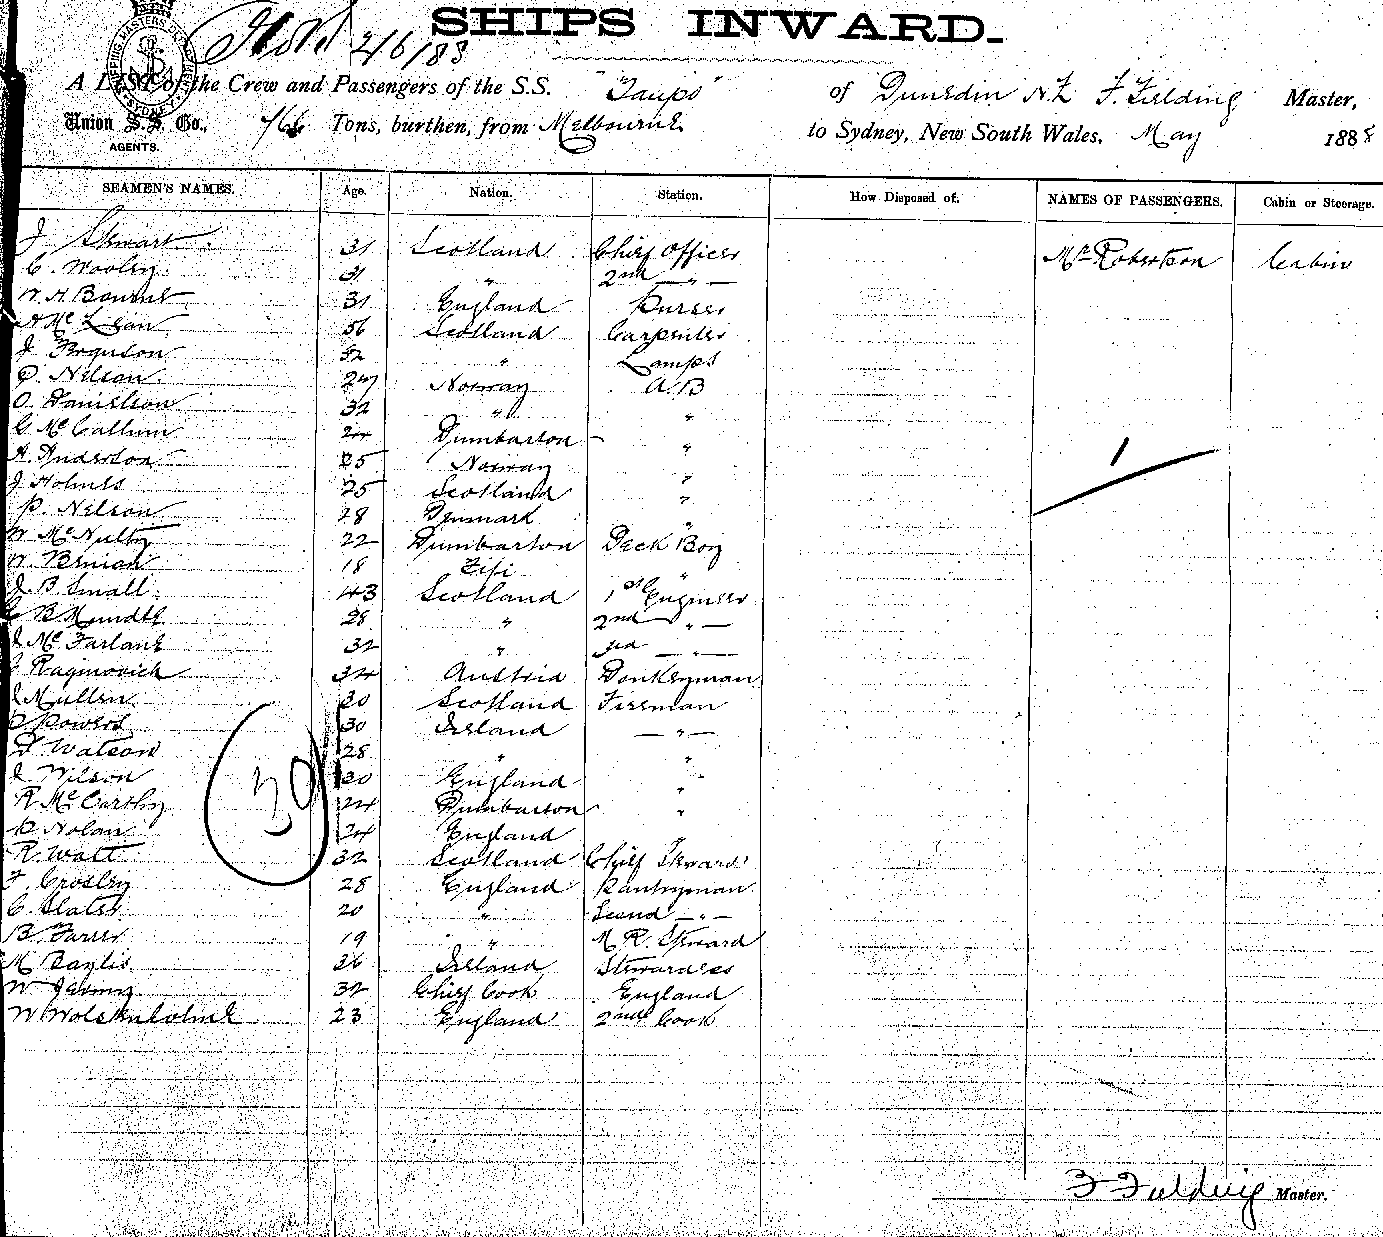 SHIPS INWARD.
2/6/88
A LIST of the Crew and Passengers of the S.S. "Taupo" of Dunedin N.Z F. Fielding Master,
Union S.S. Co., Tons, burthen, from Melbourne to Sydney, New South Wales, May 1888
AGENTS.
SEAMEN'S NAMES. Age. Nation. Station. How Disposed of. NAMES OF PASSENGERS. Cabin or Steerage.
J Stewart 31 Scotland Chief Officer Mr Robertson Cabin
C. Wooley 31 " 2nd — " —
W. H. Bourne 31 England Purser
A Mc Lean 56 Scotland Carpenter
J Ferguson 52 " Lamps
Nelson 27 Norway A.B
O. Danielson 32 " "
G Mc Callum 24 Dumbarton "
A. Anderson 25 Norway "
J Holmes 25 Scotland "
P. Nelson 28 Denmark "
W McNulty 22 Dumbarton Deck Boy
W. 18 Fiji "
J. B Small 43 Scotland 1st Engineer
28 " 2nd — " —
J Mc Farlane 32 " 3rd — " —
Raginovich 34 Austria Donkeyman
J Mullen 30 Scotland Fireman
Powers 30 Ireland — " —
Watson 28 " "
J Wilson 30 England "
R McCarthy 24 Dumbarton "
Nolan 24 England "
R. Watt 32 Scotland Chief Steward
F. Crosley 28 England Pantryman
C. Slater 20 " Second — " —
B. 19 " M. R. Steward
M Baylis 36 Ireland Stewardess
W 32 Chief Cook England
W Wolstenholme 23 England 2nd Cook
1
30
F Fielding Master.